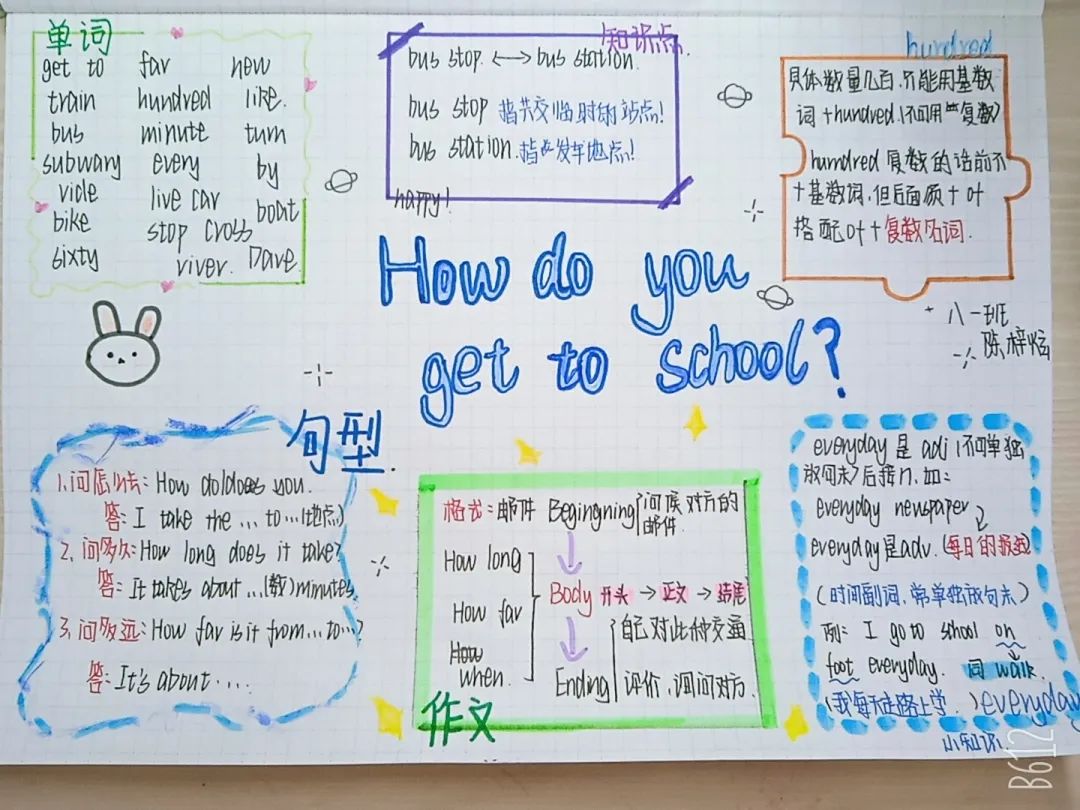 单词
get to far new
train hundred like.
bus minute turn
subwary every by
vide live car boat
bike stop cross
sixty river. Dave
知识点.
bus stop. ⟷ bus station.
bus stop 指共交临时的站点!
bus station. 指发车地点!
happy!
hundred
具体数量几百,不能用基数
词+hundred.(不可用“复数)
humdred 复数的话前不
十基数词,但后面须十of
搭配of+复数名词.
How do you
get to school?
八一班
陈梓炫
句型.
1.问怎么去:How do/does you.
答:I take the ... to ...(地点)
2.问多久:How long does it take?
答:It takes about ...(数)minutes.
3.问多远:How far is it from...to...?
答:It's about ....
格式:邮件 Begingning 问候对方的
邮件.
How long
How far
How
when.
Body 开头→正文→结尾
自己对此种交通
Ending 评价,询问对方.
作文
everyday 是 adj (不可单独
放句末)后接n,如:
everyday newspaper
everyday是adv.(每日的报纸)
(时间副词,常单独放句末)
例: I go to school on
foot everyday. 同 walk.
(我每天走路上学.)everyday
小知识.
B612